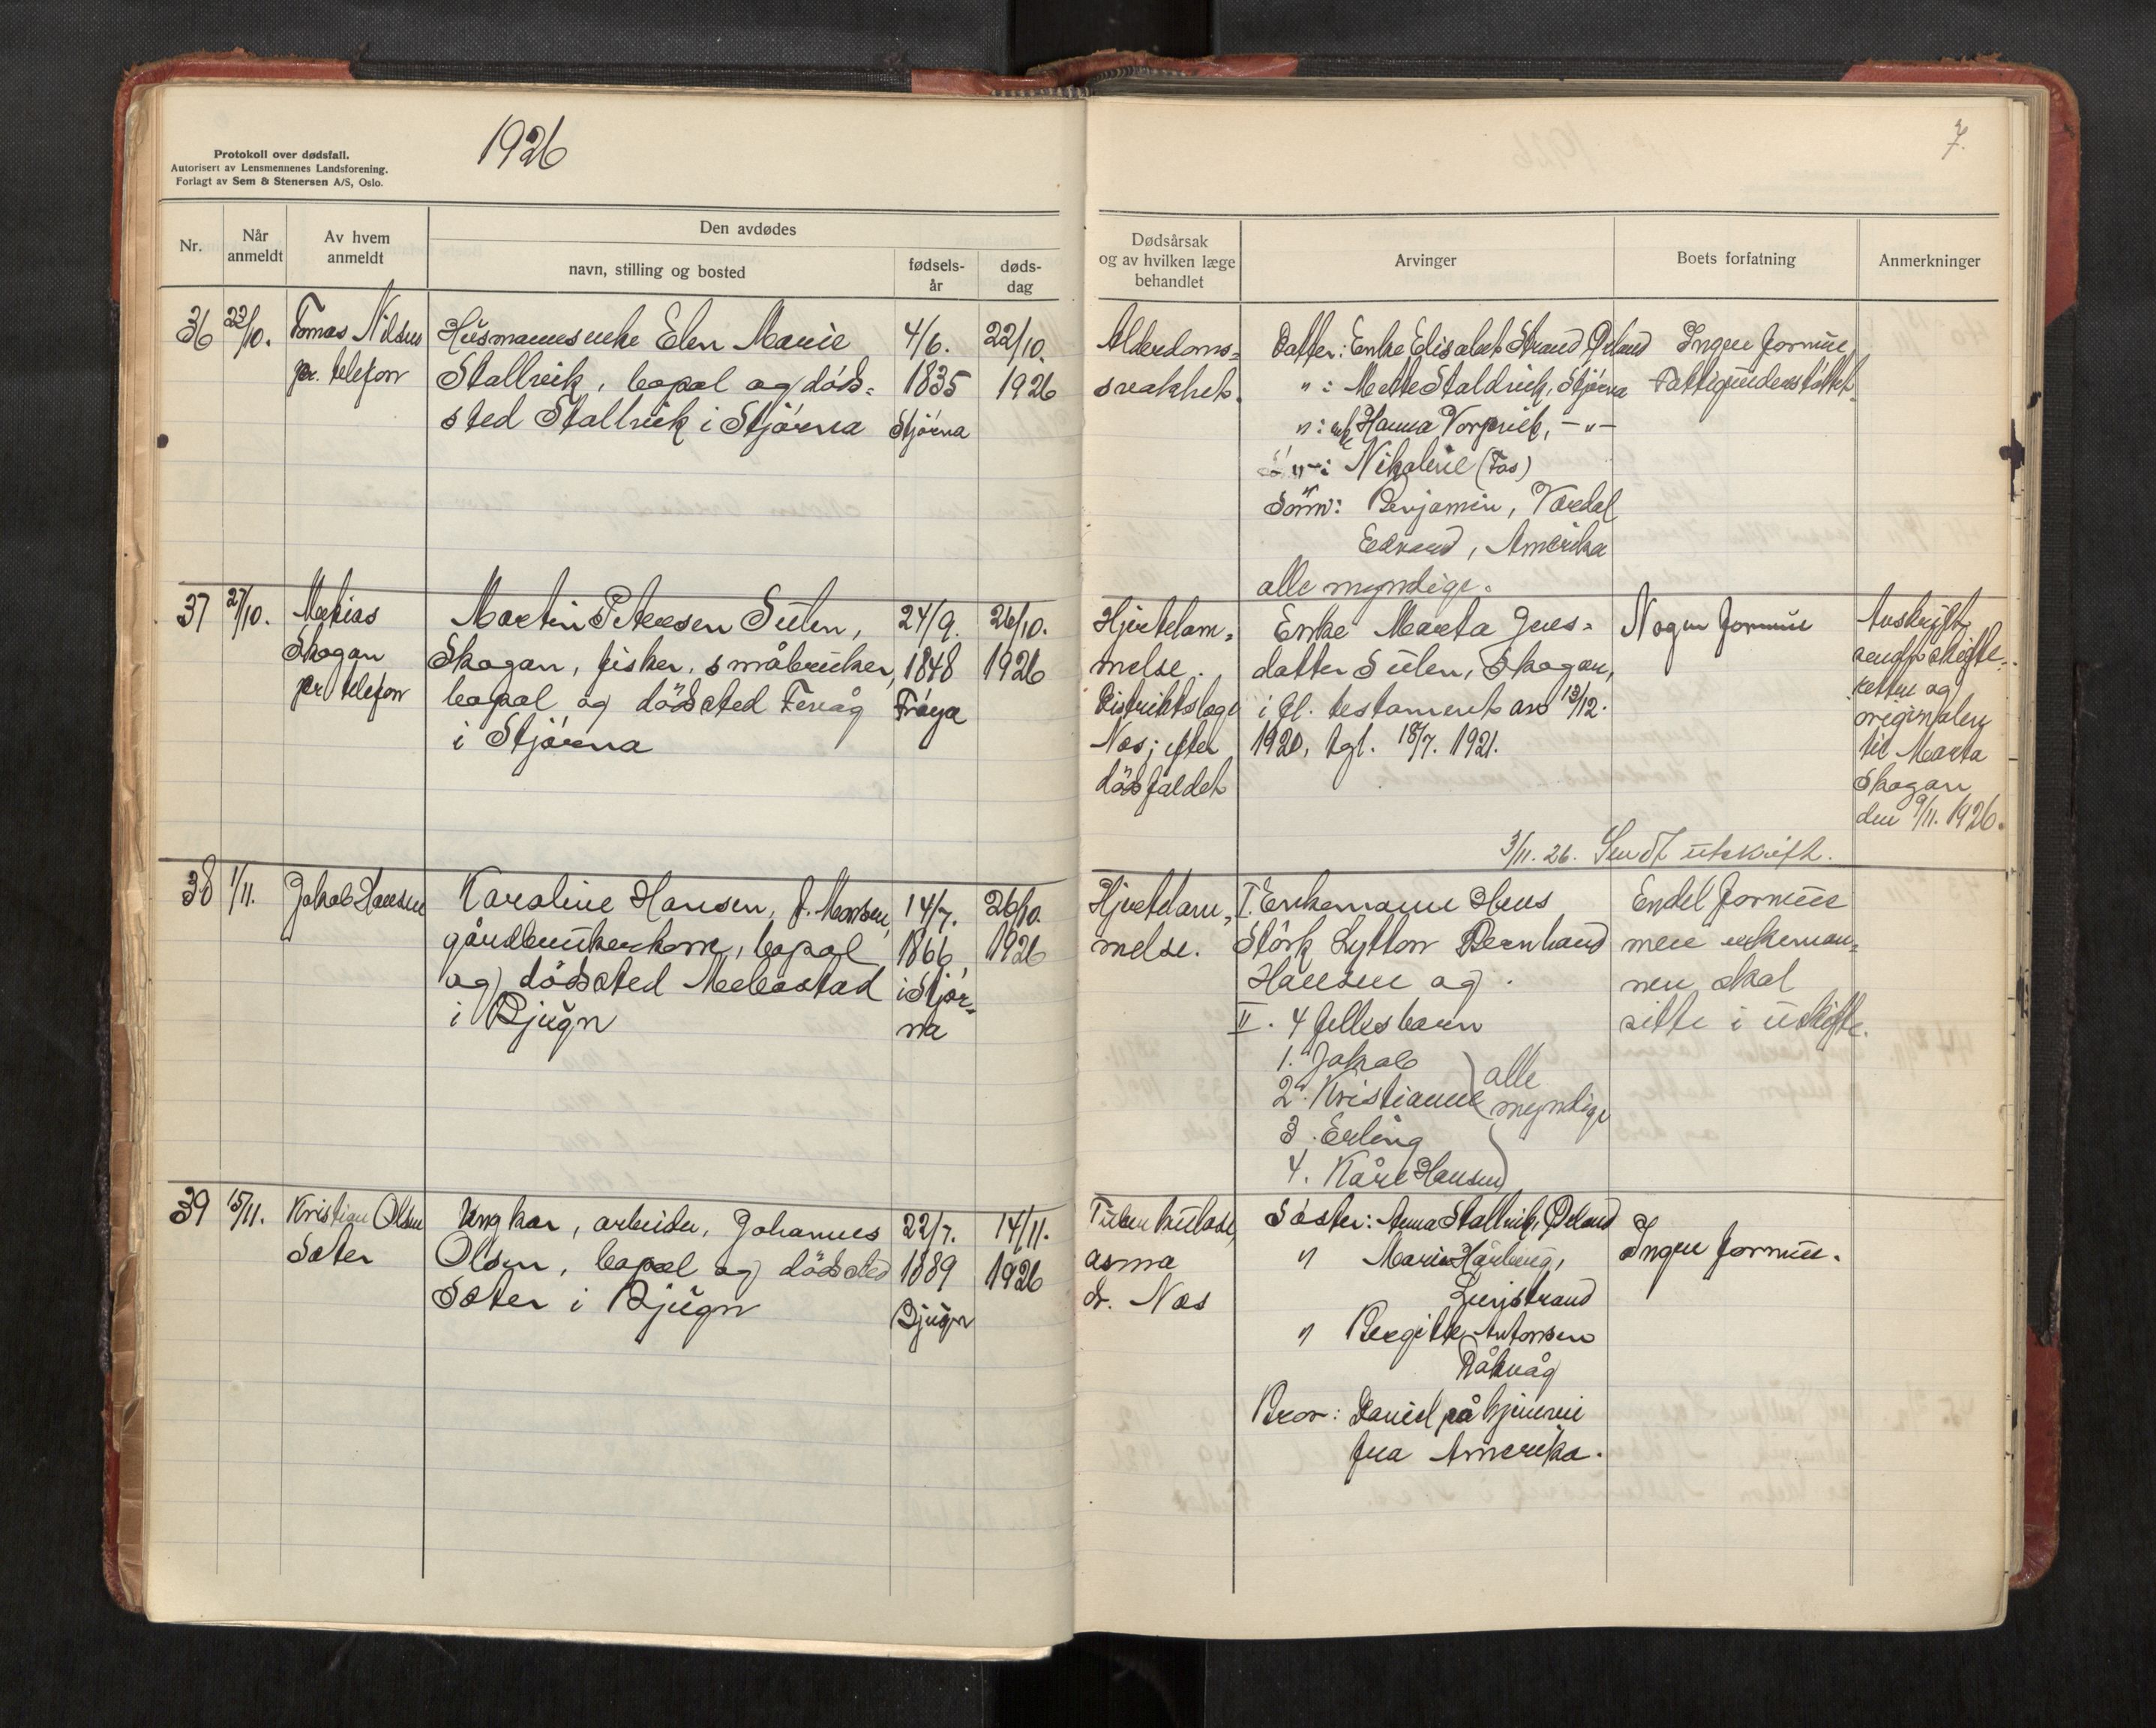 Protokoll over dødsfall.
Autorisert av Lensmennenes Landsforening.
Forlagt av Sem & Stenersen A/S, Oslo.
1926
7.
Nr.
Når anmeldt
Av hvem anmeldt
Den avdødes
navn, stilling og bosted
fødsels-år
døds-dag
Dødsårsak og av hvilken læge behandlet
Arvinger
Boets forfatning
Anmerkninger
36
22/10.
Tomas Nilsen
pr. telefon
Husmannsenke Elen Marie
Stallvik, bopæl og döds-
sted Stallvik i Stjörna
4/6.
1835
Stjörna
22/10.
1926
Alderdoms-
svakhet.
Datter: Enke Elisabet Strand Örland
" : Mette Staldvik, Stjörna
" : Hanna Vorpvik, -"-
" : Nikoline (Fos)
Sönn: Benjamin, Værdal
Edvard, Amerika
alle myndige.
Ingen formue,
Fattigunderstöttet.
37
27/10.
Matias
Skogan
pr telefon
Martin Petersen Sulen,
Skogan, fisker, småbruker,
bopæl og dödssted Fevåg
i Stjörna
24/9.
1848
Fröya
26/10.
1926
Hjertelam-
melse.
Distriktslæge
Næs; efter
dödsfaldet
Enke Marta Jens-
datter Sulen, Skogan,
i fl. testament av 13/12.
1920, tgl. 18/7. 1921.
Nogen formue
Avskrift
sendt skifte-
retten og
originalen
til Marta
Skogan
den 9/11. 1926.
3/11. 26. Sendt utskrift.
38
1/11.
Jakob Hansen
Karoline Hansen, f. Monsen,
gårdbrukerkone, bopæl
og dödssted Mebostad
i Bjugn
14/7.
1866
i Stjör-
na
26/10.
1926
Hjertelam-
melse.
I. Enkemann Hans
Störk Lytton Bernhard
Hansen og
II. 4 fellesbarn
1. Jakob
2. Kristianne
3. Erling
4. Kåre Hansen
alle
myndige
Endel formue
men enkeman-
nen skal
sitte i uskifte.
39
15/11.
Kristian Olsen
Sæter
Ungkar, arbeider, Johannes
Olsen, bopæl og dödssted
Sæter i Bjugn
22/7.
1889
Bjugn
14/11.
1926
Tuberkulose,
asma
dr. Næs
Söster: Anna Stallvik, Örland
" Marie Hårberg,
" Bergitte Antonsen
Råkvåg
Bror: Daniel på hjemvei
fra Amerika.
Ingen formue.